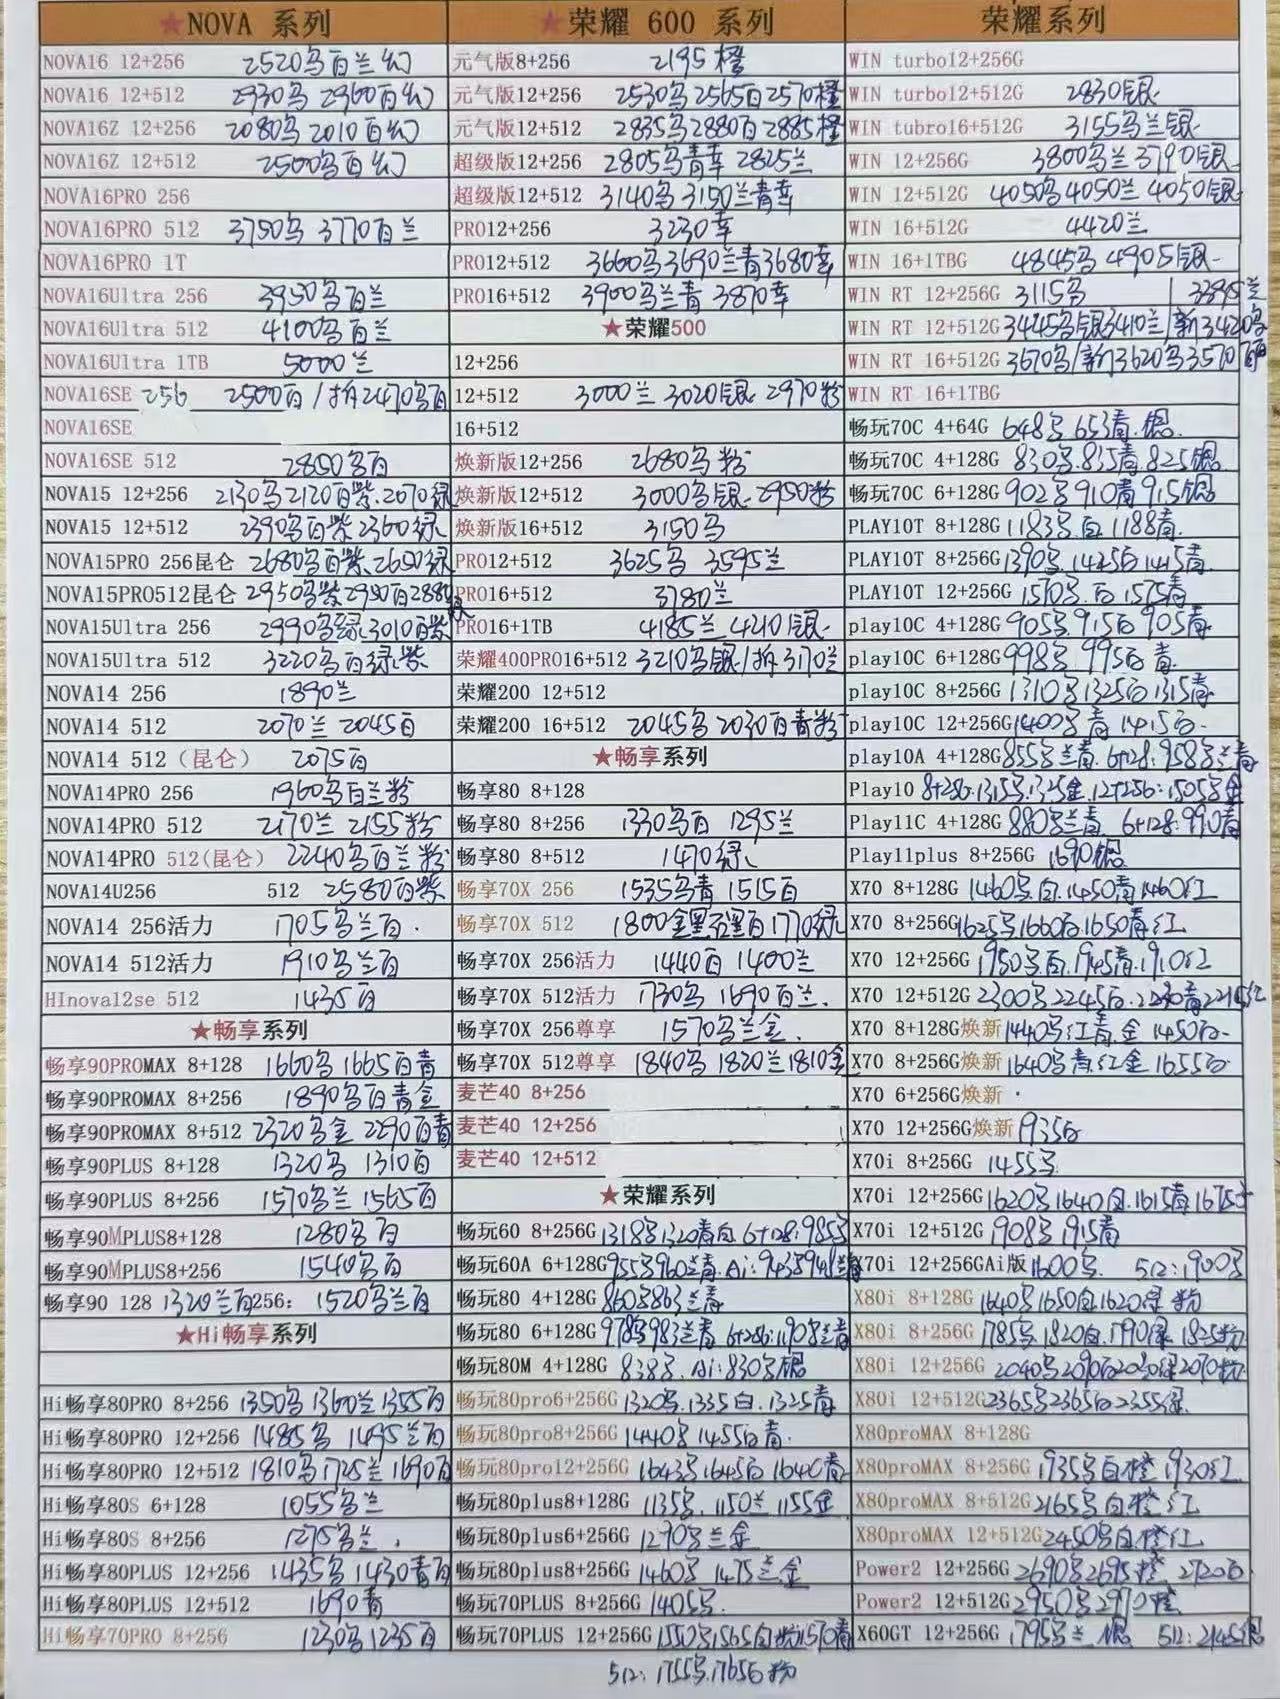 ★NOVA 系列
NOVA16 12+256 2520乌百兰幻
NOVA16 12+512 2930乌 2960百幻
NOVA16Z 12+256 2080乌 2010百幻
NOVA16Z 12+512 2500乌百幻
NOVA16PRO 256
NOVA16PRO 512 3750乌 3770百兰
NOVA16PRO 1T
NOVA16Ultra 256 3950乌百兰
NOVA16Ultra 512 4100乌百兰
NOVA16Ultra 1TB 5000兰
NOVA16SE 256 2500百/拆2470乌百
NOVA16SE
NOVA16SE 512 2850乌百
NOVA15 12+256 2130乌2120百紫.2070绿
NOVA15 12+512 2390乌百紫2360绿
NOVA15PRO 256昆仑 2680乌百紫.2650绿
NOVA15PRO512昆仑 2950乌紫2930百288绿
NOVA15Ultra 256 2990乌绿.3010百紫
NOVA15Ultra 512 3220乌百绿紫
NOVA14 256 1890兰
NOVA14 512 2070兰 2045百
NOVA14 512（昆仑） 2075百
NOVA14PRO 256 1960乌百兰粉
NOVA14PRO 512 2170兰 2155粉
NOVA14PRO 512(昆仑） 2240乌百兰粉
NOVA14U256 512 2580百紫
NOVA14 256活力 1705乌兰百.
NOVA14 512活力 1910乌兰百
HInova12se 512 1435百
★畅享系列
畅享90PROMAX 8+128 1660乌 1665百青
畅享90PROMAX 8+256 1890乌百青金
畅享90PROMAX 8+512 2320乌金 2290百青
畅享90PLUS 8+128 1320乌 1310百
畅享90PLUS 8+256 1570乌兰 1565百
畅享90MPLUS8+128 1280乌百
畅享90MPLUS8+256 1540乌百
畅享90 128 1320兰百256: 1520乌兰百
★Hi畅享系列
Hi畅享80PRO 8+256 1350乌 1360兰 1355百
Hi畅享80PRO 12+256 1485乌 1495兰百
Hi畅享80PRO 12+512 1810乌1725兰 1690百
Hi畅享80S 6+128 1055乌兰
Hi畅享80S 8+256 1275乌兰.
Hi畅享80PLUS 12+256 1435乌 1430青百
Hi畅享80PLUS 12+512 1690青
Hi畅享70PRO 8+256 1230乌1235百
★荣耀 600 系列
元气版8+256 2195橙
元气版12+256 2530乌2565百2570橙
元气版12+512 2835乌2880百2885橙
超级版12+256 2805乌青幸 2825兰
超级版12+512 3140乌 3150兰青幸
PRO12+256 3230幸
PRO12+512 3660乌3690兰青3680幸
PRO16+512 3900乌兰青 3870幸
★荣耀500
12+256
12+512 3000兰 3020银 2970粉
16+512
焕新版12+256 2680乌粉
焕新版12+512 3000乌银.2950粉
焕新版16+512 3150乌
PRO12+512 3625乌 3595兰
PRO16+512 3780兰
PRO16+1TB 4185兰 4210银.
荣耀400PRO16+512 3210乌银/拆3170兰
荣耀200 12+512
荣耀200 16+512 2045乌2030百青粉
★畅享系列
畅享80 8+128
畅享80 8+256 1330乌百 1295兰
畅享80 8+512 1470绿
畅享70X 256 1535乌青 1515百
畅享70X 512 1800金黑 百1770绿
畅享70X 256活力 1440百 1400兰
畅享70X 512活力 1730乌 1690百兰.
畅享70X 256尊享 1570乌兰金.
畅享70X 512尊享 1840乌 1820兰1810金
麦芒40 8+256
麦芒40 12+256
麦芒40 12+512
★荣耀系列
畅玩60 8+256G 1318乌1320青白 6+128:985乌
畅玩60A 6+128G 955乌960兰青.Ai:943乌 兰青
畅玩80 4+128G 860乌863兰青
畅玩80 6+128G 978乌983兰青 6+256:1190乌兰青
畅玩80M 4+128G 838乌.Ai:830乌银
畅玩80pro6+256G 1320乌.1335白.1325青
畅玩80pro8+256G 1440乌1455百青.
畅玩80pro12+256G 1643乌1645百 1640青
畅玩80plus8+128G 1135乌.1150兰 1155金
畅玩80plus6+256G 1270乌兰金
畅玩80plus8+256G 1460乌 1475兰金
畅玩70PLUS 8+256G 1405乌.
畅玩70PLUS 12+256G 1550乌1565白粉1570青
512:1755乌.1765百粉
荣耀系列
WIN turbo12+256G
WIN turbo12+512G 2830银.
WIN tubro16+512G 3155乌兰银.
WIN 12+256G 3800乌兰3790银.
WIN 12+512G 4050乌4050兰 4050银.
WIN 16+512G 4420兰
WIN 16+1TBG 4845乌 4905银.
WIN RT 12+256G 3115乌 | 兰
WIN RT 12+512G 3445乌银3410兰/新3420乌
WIN RT 16+512G 3670乌/新3620乌3570百
WIN RT 16+1TBG
畅玩70C 4+64G 648乌 653青.银.
畅玩70C 4+128G 830乌.835青.825银
畅玩70C 6+128G 902乌 910青 915银
PLAY10T 8+128G 1183乌.白 1188青.
PLAY10T 8+256G 1390乌.1425百 1415青.
PLAY10T 12+256G 1570乌.百 1575青
play10C 4+128G 905乌.915百 905青
play10C 6+128G 998乌.995百 青
play10C 8+256G 1310乌1325百 1315青
play10C 12+256G 1400乌 青 1415百.
play10A 4+128G 855乌兰青.6+128:958乌兰青
Play10 8+256:1315乌.1325金.12+256:1505乌金
Play11C 4+128G 880乌兰青. 6+128:990青
Play11plus 8+256G 1690银
X70 8+128G 1460乌.白.1450青1460红
X70 8+256G 1625乌1660百1650青.红
X70 12+256G 1950乌.百.1945青.1910红
X70 12+512G 2300乌2245百.2230青2215红
X70 8+128G焕新 1440乌红青.金 1450百.
X70 8+256G焕新 1640乌青.红金 1655百
X70 6+256G焕新 ·
X70 12+256G焕新 1935百
X70i 8+256G 1455乌.
X70i 12+256G 1620乌1640白.1615青
X70i 12+512G 1908乌 1915青
X70i 12+256GAi版 1600乌. 512:1900乌
X80i 8+128G 1640乌1650白1620绿 粉
X80i 8+256G 1785乌.1820白.1790绿 1825粉
X80i 12+256G 2040乌2090百2030绿2070粉
X80i 12+512G 2365乌2365百2355绿.
X80proMAX 8+128G
X80proMAX 8+256G 1935乌白橙 1930红
X80proMAX 8+512G 2165乌白橙红
X80proMAX 12+512G 2450乌白橙红
Power2 12+256G 2690乌2695橙 2720百
Power2 12+512G 2950乌2970橙
X60GT 12+256G 1795乌兰 银 512:2145银